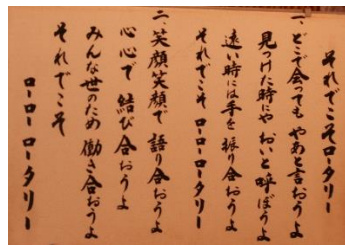 それでこそロータリー
一、どこで会っても やあと言おうよ
見つけた時にや おいと呼ぼうよ
遠い時には手を振り合おうよ
それでこそ ローローロータリー
二、笑顔笑顔で 語り合おうよ
心心で 結び合おうよ
みんな世のため 働き合おうよ
それでこそ
ローローロータリー